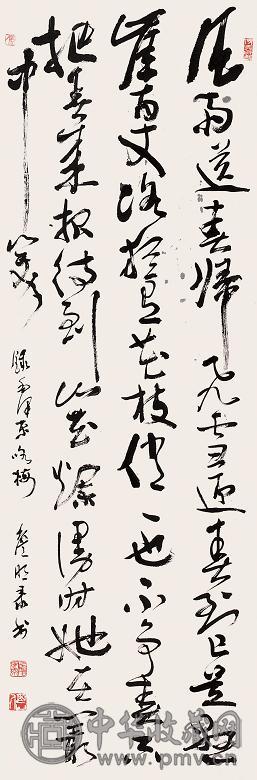 風雨送春歸飛雪迎春到已是懸
崖百丈冰猶有花枝俏俏也不争春只
把春来报待到山花爛漫时她在叢
中笑
録毛泽东咏梅
书
中华收藏网
www.pmv.cn